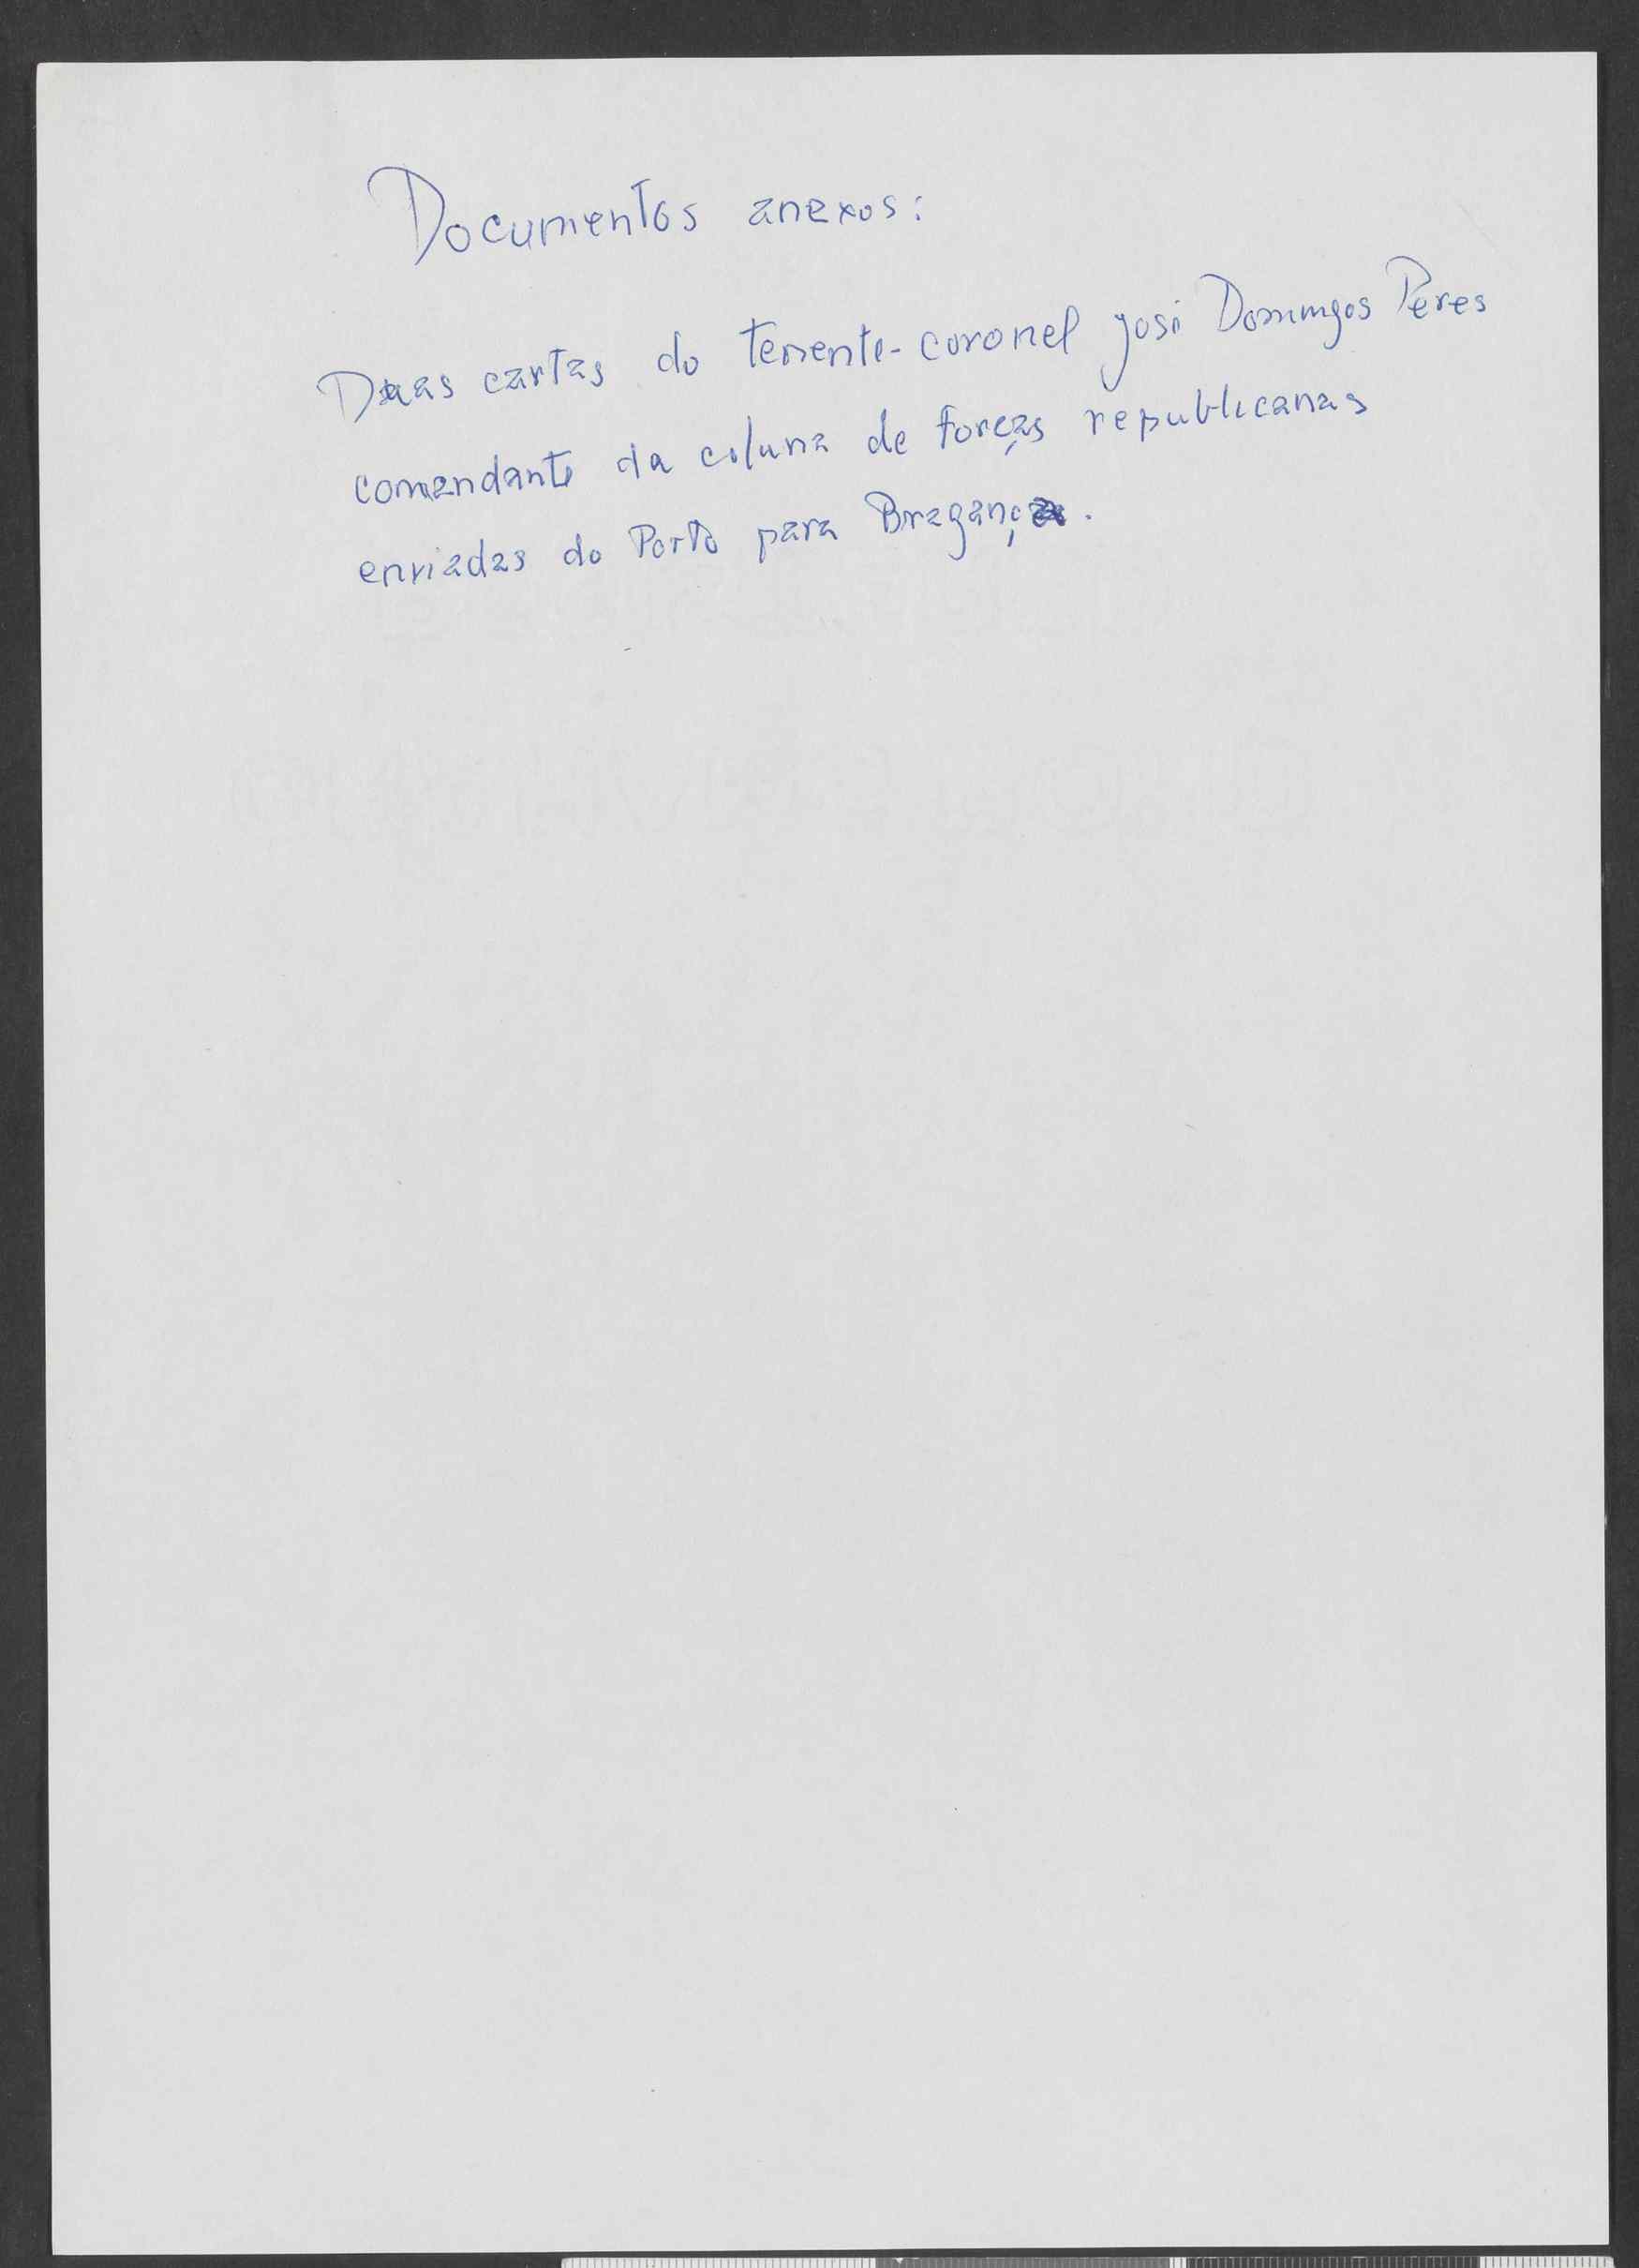 Documentos anexos:
Duas cartas do tenente-coronel José Domingos Peres
comandante da coluna de forças republicanas
enviadas do Porto para Bragança.